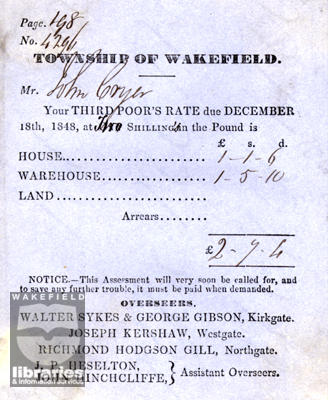 Page. 198
No. 4296
TOWNSHIP OF WAKEFIELD.
Mr. John Cryer
Your THIRD POOR'S RATE due DECEMBER
18th, 1848, at Two SHILLINGS in the Pound is
£ s. d.
HOUSE........................ 1-1-6
WAREHOUSE.................. 1-5-10
LAND ........................
Arrears ........
£ 2-7-4
NOTICE.—This Assessment will very soon be called for, and
to save any further trouble, it must be paid when demanded.
OVERSEERS.
WALTER SYKES & GEORGE GIBSON, Kirkgate.
JOSEPH KERSHAW, Westgate.
RICHMOND HODGSON GILL, Northgate.
J. P. HESELTON,
HINCHCLIFFE, } Assistant Overseers.
WAKEFIELD
libraries
& information services